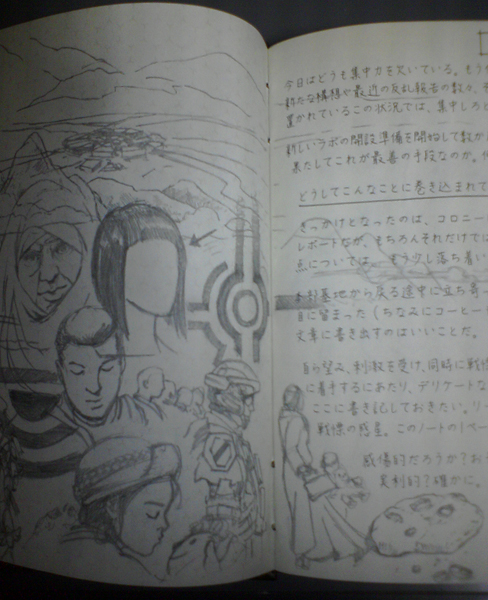 今日はどうも集中力を欠いている。もう
新たな構構や最近の反乱報告の数々、そ
置かれているこの状況では、集中しろと
新しいラボの開設準備を開始して数か
果たしてこれが最善の手段なのか。
どうしてこんなことに巻き込まれて
きっかけとなったのは、コロニー
レポートだが、もちろんそれだけでは
点については、もう少し落ち着い
基地から戻る途中に立ち寄
目に留まった(ちなみにコーヒー
文章に書き出すのはいいことだ。
自ら望み、刺激を受け、同時に戦慄
に着手するにあたり、デリケートな
ここに書き記しておきたい。リー
戦慄の惑星。このノートの1ペー
感傷的だろうか?お
実利的?確かに。